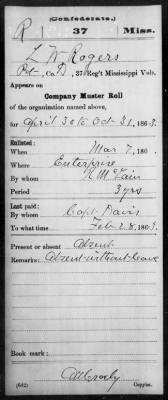 (Confederate.)
R 37 Miss.
L W Rogers
Pvt, Co. D, 37 Reg't Mississippi Vols.
Appears on
Company Muster Roll
of the organization named above,
for April 30 to Oct 31, 1863.
Enlisted:
When Mar 7, 186 .
Where Enterprise
By whom R McLain
Period 3 yrs
Last paid:
By whom Capt Davis
To what time Feb 28, 1863.
Present or absent Absent
Remarks: Absent without leave
Book mark:
(642) Copyist.